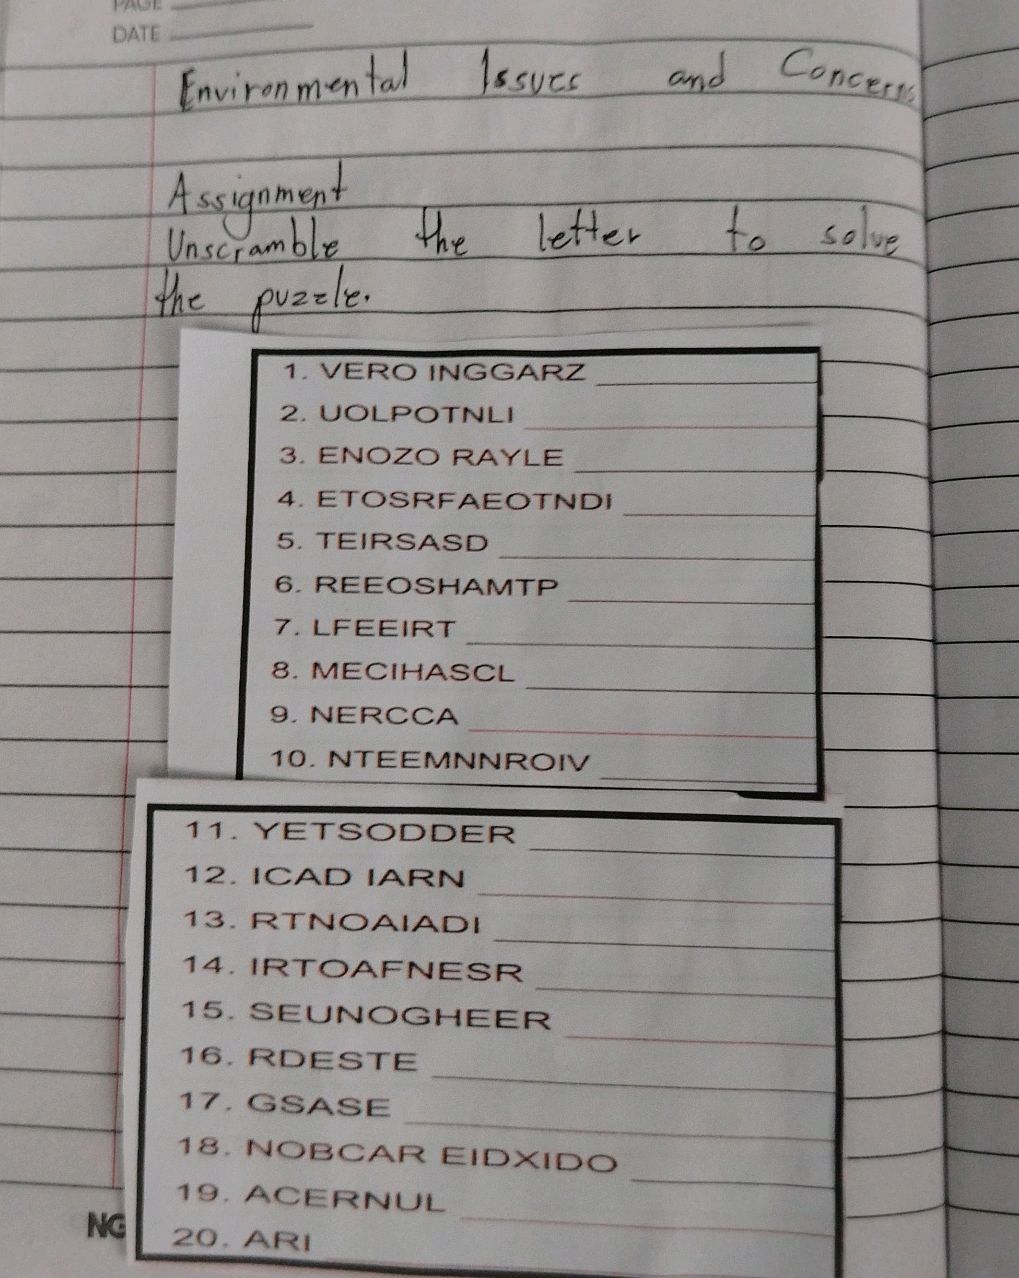 PAGE
DATE
Environmental Issues and Concerns
Assignment
Unscramble the letter to solve
the puzzle.
1. VERO INGGARZ
2. UOLPOTNLI
3. ENOZO RAYLE
4. ETOSRFAEOTNDI
5. TEIRSASD
6. REEOSHAMTP
7. LFEEIRT
8. MECIHASCL
9. NERCCA
10. NTEEMNNROIV
11. YETSODDER
12. ICAD IARN
13. RTNOAIADI
14. IRTOAFNESR
15. SEUNOGHEER
16. RDESTE
17. GSASE
18. NOBCAR EIDXIDO
19. ACERNUL
20. ARI
NG